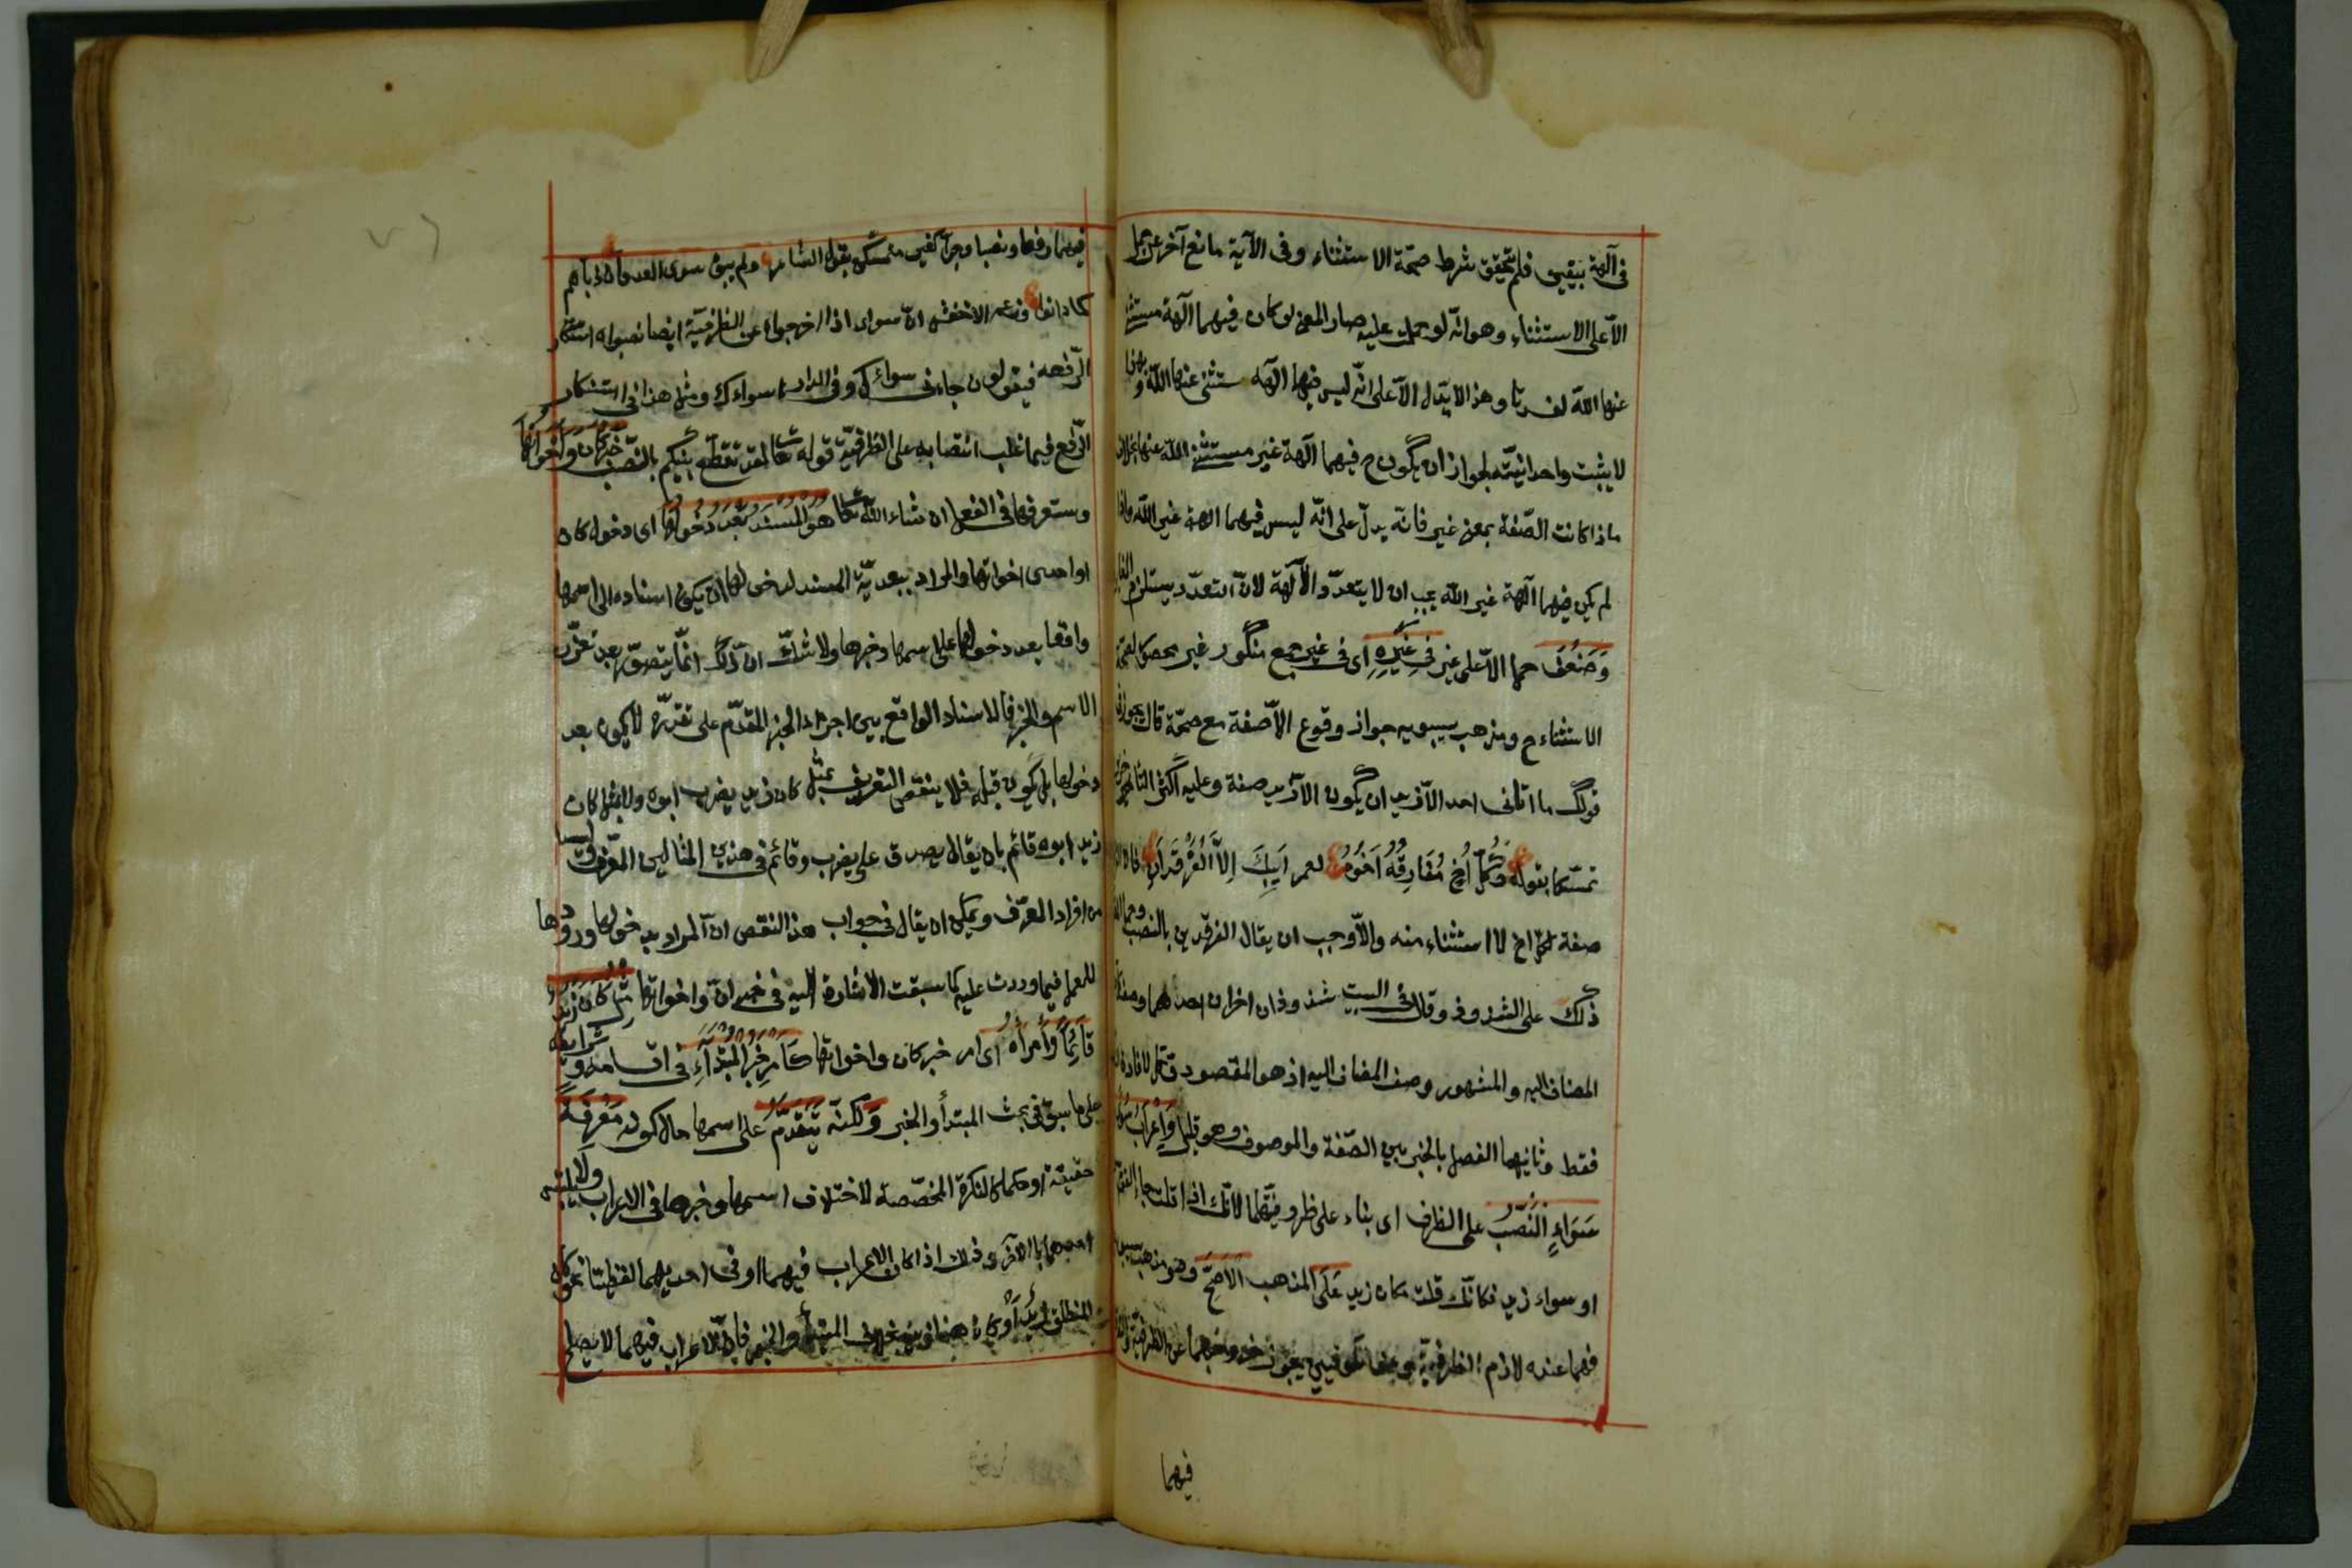 فى آلهة بيقين فلم يتحقق شرط صحّة الاستثناء وفى الآية مانع آخر عن حمل
الاّ على الاستثناء وهو انّه لو حملت عليه صار المعنى لو كان فيهما آلهة مستثنى
عنها اللّه لفسدتا وهذا لا يدل الاّ على انّه ليس فيهما آلهة مستثنى عنها اللّه وبهذا
لا يثبت واحدانيّته لجواز ان يكون ح فيهما آلهة غير مستثنى اللّه عنها بخلاف
ما اذا كانت الصّفة بمعنى غير فانّه يدلّ على انّه ليس فيهما الهة غير اللّه واذا
لم يكن فيهما آلهة غير اللّه يجب ان لا يتعدّد الآلهة لانّ التعدّد يستلزم
وَضَعُفَ حمل الاّ على غير فِى غَيْرِهِ اى فى غير جمع منكور غير محصور لصحّة
الاستثناء ح ومذهب سيبويه جواز وقوع الاّ صفة مع صحّة قال يجوز فى
قولك ما اتانى احد الاّ زيد ان يكون الاّ زيد صفة وعليه اكثر المتاخرين
تمسّكا بقوله وَكُلُّ أَخٍ مُفَارِقُهُ اَخُوهُ لعمر اَبِيكَ اِلاَّ الْفَرْقَدَانِ فان
صفة لكلّ اخ لا استثناء منه والاّ وجب ان يقال الفرقدين بالنصب وحمل
ذلك على الشذوذ وقال فى البيت شذوذان اخران احدهما وصف
المضاف اليه والمشهور وصف المضاف اذ هو المقصود وكل لافادة
فقط وثانيهما الفصل بالخبر بين الصّفة والموصوف وهو قليل وَاِعْرَابُ سُوى
سَوَاءٍ النَّصْبُ على الظرف اى بناء على ظرفيّتهما لانّك اذا قلت جاء القوم
او سواء زيد فكانّك قلت مكان زيد عَلَى المذهب الاَصَحِّ وهو مذهب سيبويه
فهما عنده لازم الظرفيّة وعند الكوفيين يجوز خروجهما عن الظرفية
فيهما
فيهما رفعا ونصبا وجرّا كغير متمسّكين بقول الشاعر ولم يبق سوى العدوان دنّاهم
كما دانوا وزعم الاخفش انّ سواء اذا اخرجوه عن الظرفيّة ايضا نصبوه استنكارا
الرّفعه فيقولون جاءنى سوائك وفى الدار سواءك ومثل هذا فى استنكار
الرّفع فيما غلب انتصابه على الظرفيّة قوله تعالى لقد تقطّع بينكم بالنّصب خَبَرُ كَانَ وَاَخَوَاتِهَا
وستعرفها فى الفعل ان شاء اللّه تعالى هُوَ الْمُسْنَدُ بَعْدَ دُخُولِهَا اى دخول كان
او احدى اخواتها والمراد ببعديّة المسند لدخولها ان يكون اسناده الى اسمها
واقعا بعد دخولها على اسمها وخبرها ولا شكّ انّ ذلك انّما يتصوّر بعد تقرّر
الاسم والخبر فالاسناد الواقع بين اجزاء الخبر المقدّم على تقرّره لا يكون بعد
دخولها بل يكون قبله فلا ينتقض التعريف بمثل كان زيد يضرب ابوه ولا بمثل كان
زيد ابوه قائم بان يقال يصدق على يضرب وقائم فى هذين المثالين المعرّف وليسا
من افراد المعرّف ويمكن ان يقال فى جواب هذا النقض انّ المراد بدخولها ورودها
للعمل فيما وردت عليه كما سبقت الاشارة اليه فى خبر انّ واخواتها مِثْلُ كَانَ زَيْدٌ
قَائِمًا وَاَمْرُهُ اى امر خبر كان واخواتها كَاَمْرِ خَبَرِ الْمُبْتَدَاءِ فى اقسامه وشرائطه
على ما سبق فى بحث المبتدأ والخبر وَلَكِنَّهُ يَتَقَدَّمُ على اسمها حال كونه مَعْرِفَةً
حقيقة او حكما كالنكرة المخصّصة لاختلاف اسمها وخبرها فى الاعراب ولا يلتبس
احدهما بالآخر وذلك اذا كان الاعراب فيهما او فى احديهما لفظيّا نحو كان
المنطلق زيدا او كان هذا زيد بخلاف المبتدأ والخبر فانّ الاعراب فيهما لا يصلح